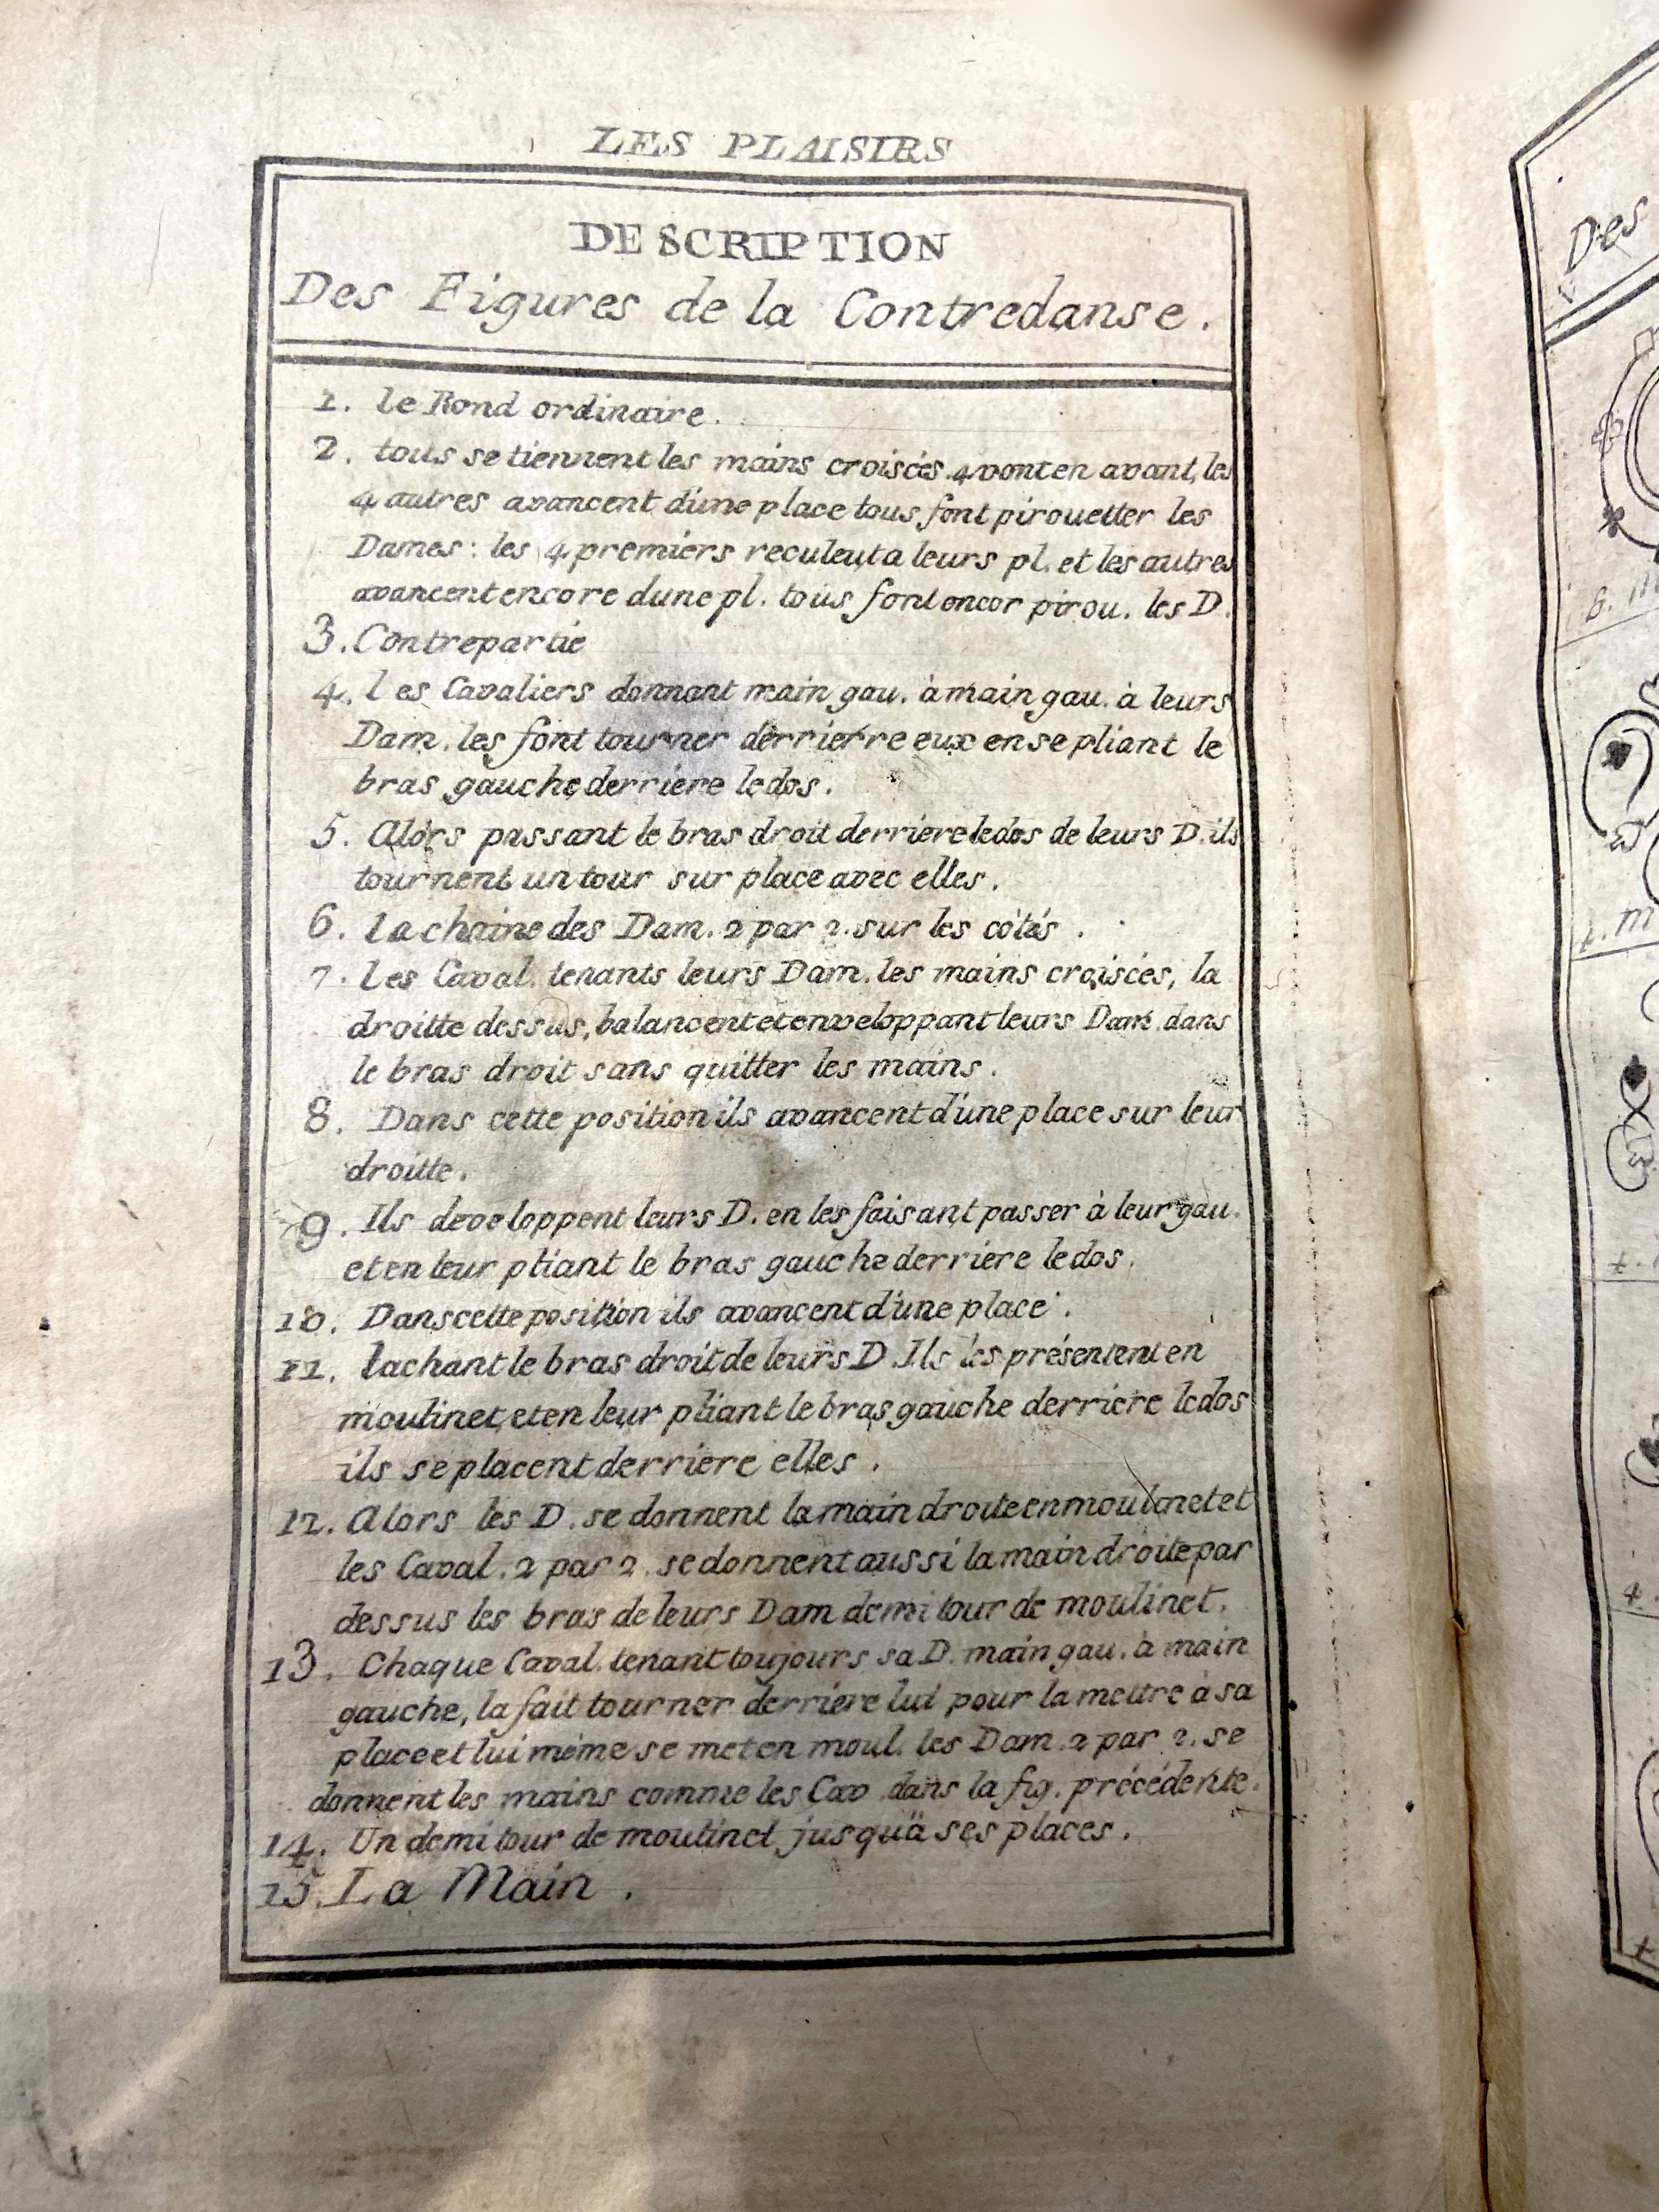 LES PLAISIRS
DESCRIPTION
Des Figures de la Contredanse.
1. le Rond ordinaire.
2. tous se tiennent les mains croisées. 4 vont en avant, les
4 autres avancent d'une place tous font pirouetter les
Dames: les 4 premiers reculent a leurs pl. et les autres
avancent encore dune pl. tous font encor pirou. les D.
3. Contrepartie
4. les Cavaliers donnant main gau. à main gau. à leurs
Dam. les font tourner derrierre eux en se pliant le
bras gauche derriere le dos.
5. Alors passant le bras droit derriere le dos de leurs D. ils
tournent un tour sur place avec elles.
6. la chaine des Dam. 2 par 2. sur les côtés.
7. Les Caval. tenants leurs Dam. les mains croisées, la
droitte dessus, balancent et enveloppant leurs Dam. dans
le bras droit sans quitter les mains.
8. Dans cette position ils avancent d'une place sur leur
droitte.
9. Ils developpent leurs D. en les faisant passer à leur gau.
et en leur pliant le bras gauche derriere le dos.
10. Dans cette position ils avancent d'une place.
11. lachant le bras droit de leurs D. Ils les présentent en
moulinet, et en leur pliant le bras gauche derriere le dos
ils se placent derriere elles.
12. Alors les D. se donnent la main droite en moulinet et
les Caval. 2 par 2. se donnent aussi la main droite par
dessus les bras de leurs Dam demi tour de moulinet.
13. Chaque Caval. tenant toujours sa D. main gau. à main
gauche, la fait tourner derriere lui pour la mettre à sa
place et lui même se met en moul. les Dam. 2 par 2. se
donnent les mains comme les Cav. dans la fig. précédente.
14. Un demi tour de moulinet jusqu'à ses places.
15. La Main.
Des